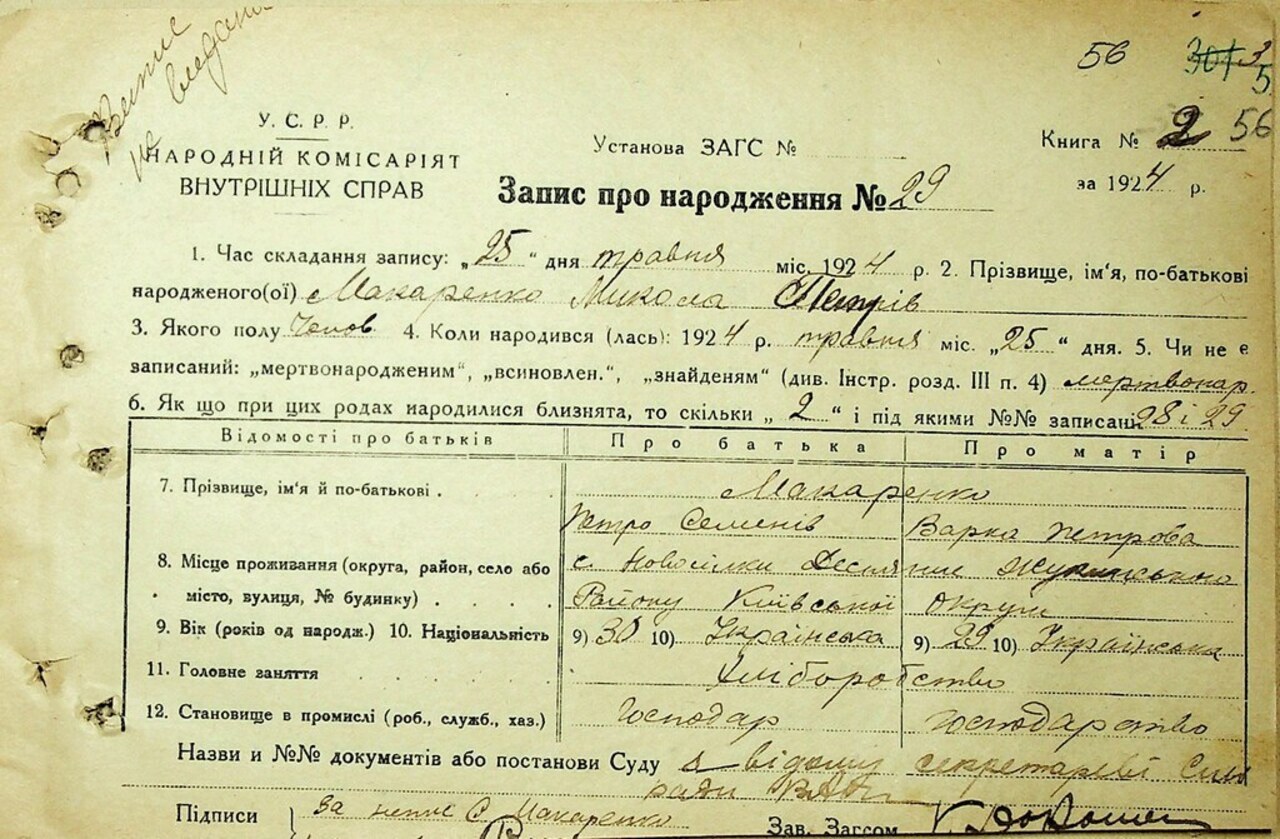 Випис не видано
56 301 3
5
У. С. Р. Р.
НАРОДНІЙ КОМІСАРІЯТ
ВНУТРІШНІХ СПРАВ
Установа ЗАГС №
Книга № 2 56
за 1924 р.
Запис про народження № 29
1. Час складання запису: „25“ дня травня міс. 1924 р. 2. Прізвище, ім'я, по-батькові
народженого(ої) Макаренко Микола Петрів
3. Якого полу Чолов. 4. Коли народився (лась): 1924 р. травня міс. „25“ дня. 5. Чи не є
записаний: „мертвонародженим“, „всиновлен.“, „знайденям“ (див. Інстр. розд. III п. 4) мертвонар.
6. Як що при цих родах народилися близнята, то скільки „2“ і під якими №№ записані 28 і 29
Відомості про батьків Про батька Про матір
7. Прізвище, ім'я й по-батькові . Макаренко
Петро Семенів Варка Петрова
8. Місце проживання (округа, район, село або с. Новосілки
місто, вулиця, № будинку) . Району Київської округи
9. Вік (років од народж.) 10. Національність 9) 30 10) Українська 9) 29 10) Українська
11. Головне заняття Хліборобство
12. Становище в промислі (роб., служб., хаз.) Господар Господарство
Назви и №№ документів або постанови Суду з відома секретареві Сіль
ради
Підписи за непис С. Макаренко Зав. Загсом